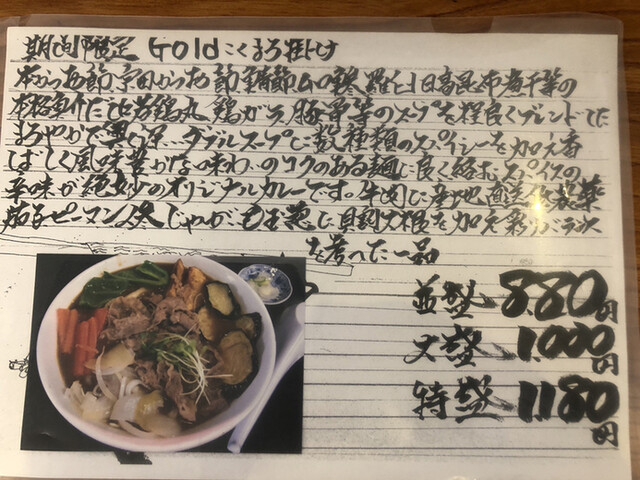 期間限定 Goldこくまろ掛け
本から お節 宗田から お節 鯖節
日高昆布 煮干等の
本格和だしと 若鶏丸 鶏がら 豚骨等のスープを程良くブレンドした
まろやかで ダブルスープに数種類のスパイシーを加え香
ばしく風味豊かな味わいのコクのある麺に良く絡むスパイスの
辛味が絶妙のオリジナルカレーです。牛肉に産地直送
茄子ピーマン じゃが 玉葱に 大根を加え彩り バランス
を考えた一品
並盛 880円
大盛 1.000円
特盛 1.180円